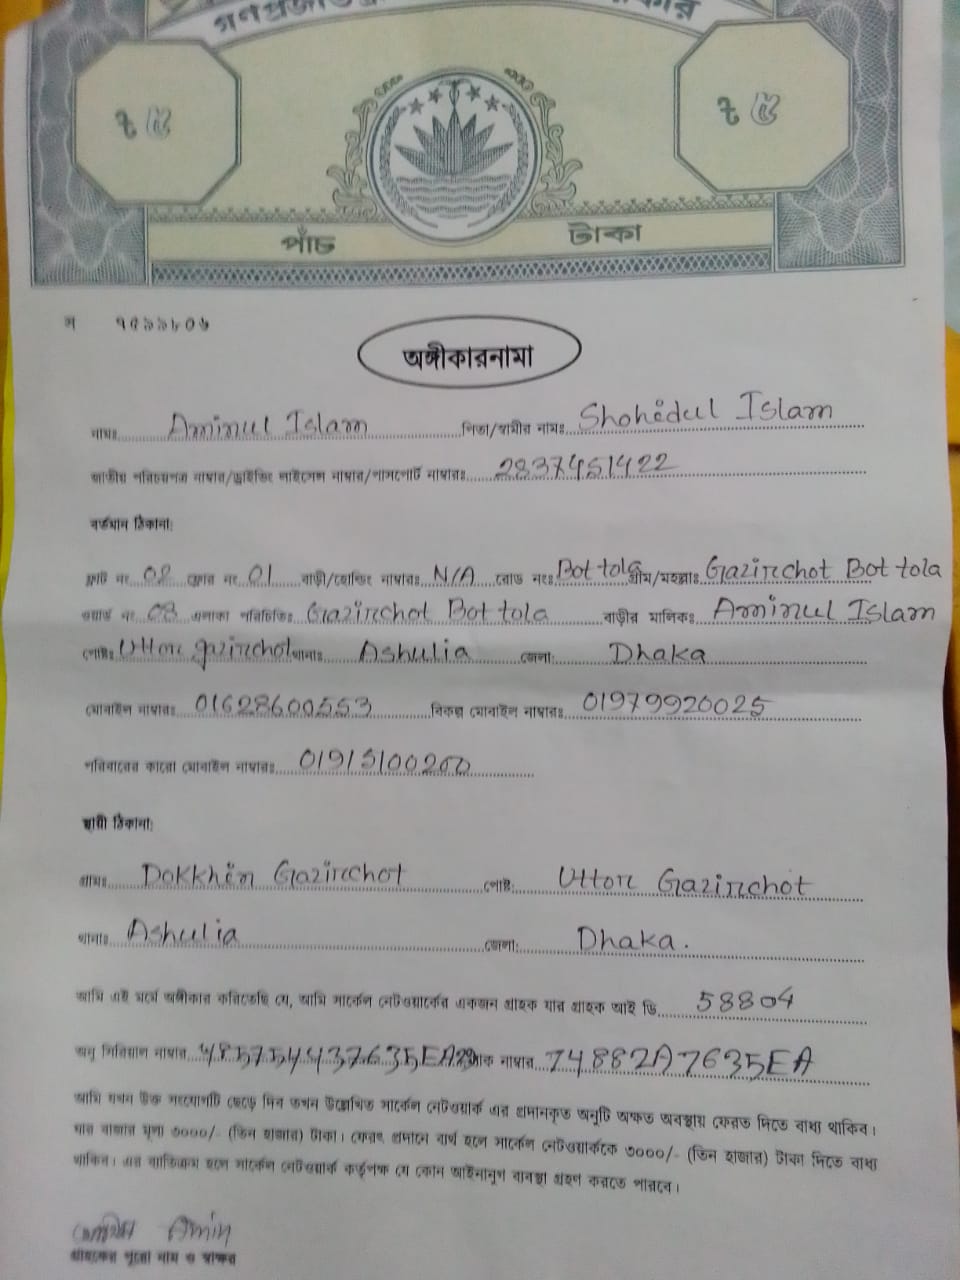 ৳ ৫ ৳ ৫
পাঁচ টাকা
অঙ্গীকারনামা
নামঃ Aminul Islam পিতা/স্বামীর নামঃ Shohidul Islam
জাতীয় পরিচয়পত্র নাম্বার/ড্রাইভিং লাইসেন্স নাম্বার/পাসপোর্ট নাম্বারঃ 2837451422
বর্তমান ঠিকানা:
ফ্লাট নং 02 ফ্লোর নং 01 বাড়ী/হোল্ডিং নাম্বারঃ N/A রোড নংঃ Bot tola গ্রাম/মহল্লাঃ Gazirchot Bot tola
ওয়ার্ড নং 03 এলাকা পরিচিতিঃ Gazirchot Bot tola বাড়ীর মালিকঃ Aminul Islam
পোষ্টঃ Uttor gazirchot থানাঃ Ashulia জেলা: Dhaka
মোবাইল নাম্বারঃ 01628600553 বিকল্প মোবাইল নাম্বারঃ 01979920025
পরিবারের কারো মোবাইল নাম্বারঃ 01915100200
স্থায়ী ঠিকানা:
গ্রামঃ Dokkhin Gazirchot পোষ্ট: Uttor Gazirchot
থানাঃ Ashulia জেলা: Dhaka.
আমি এই মর্মে অঙ্গীকার করিতেছি যে, আমি সার্কেল নেটওয়ার্কের একজন গ্রাহক যার গ্রাহক আই ডি 58804
অনু সিরিয়াল নাম্বার 485754437635EA29 ম্যাক নাম্বার 74882A7635EA
আমি যখন উক্ত সংযোগটি ছেড়ে দিব তখন উল্লেখিত সার্কেল নেটওয়ার্ক এর প্রদানকৃত অনুটি অক্ষত অবস্থায় ফেরত দিতে বাধ্য থাকিব।
যার বাজার মূল্য ৩০০০/- (তিন হাজার) টাকা। ফেরৎ প্রদানে ব্যর্থ হলে সার্কেল নেটওয়ার্ককে ৩০০০/- (তিন হাজার) টাকা দিতে বাধ্য
থাকিব। এর ব্যতিক্রম হলে সার্কেল নেটওয়ার্ক কর্তৃপক্ষ যে কোন আইনানুগ ব্যবস্থা গ্রহণ করতে পারবে।
Amin
গ্রাহকের পুরো নাম ও স্বাক্ষর